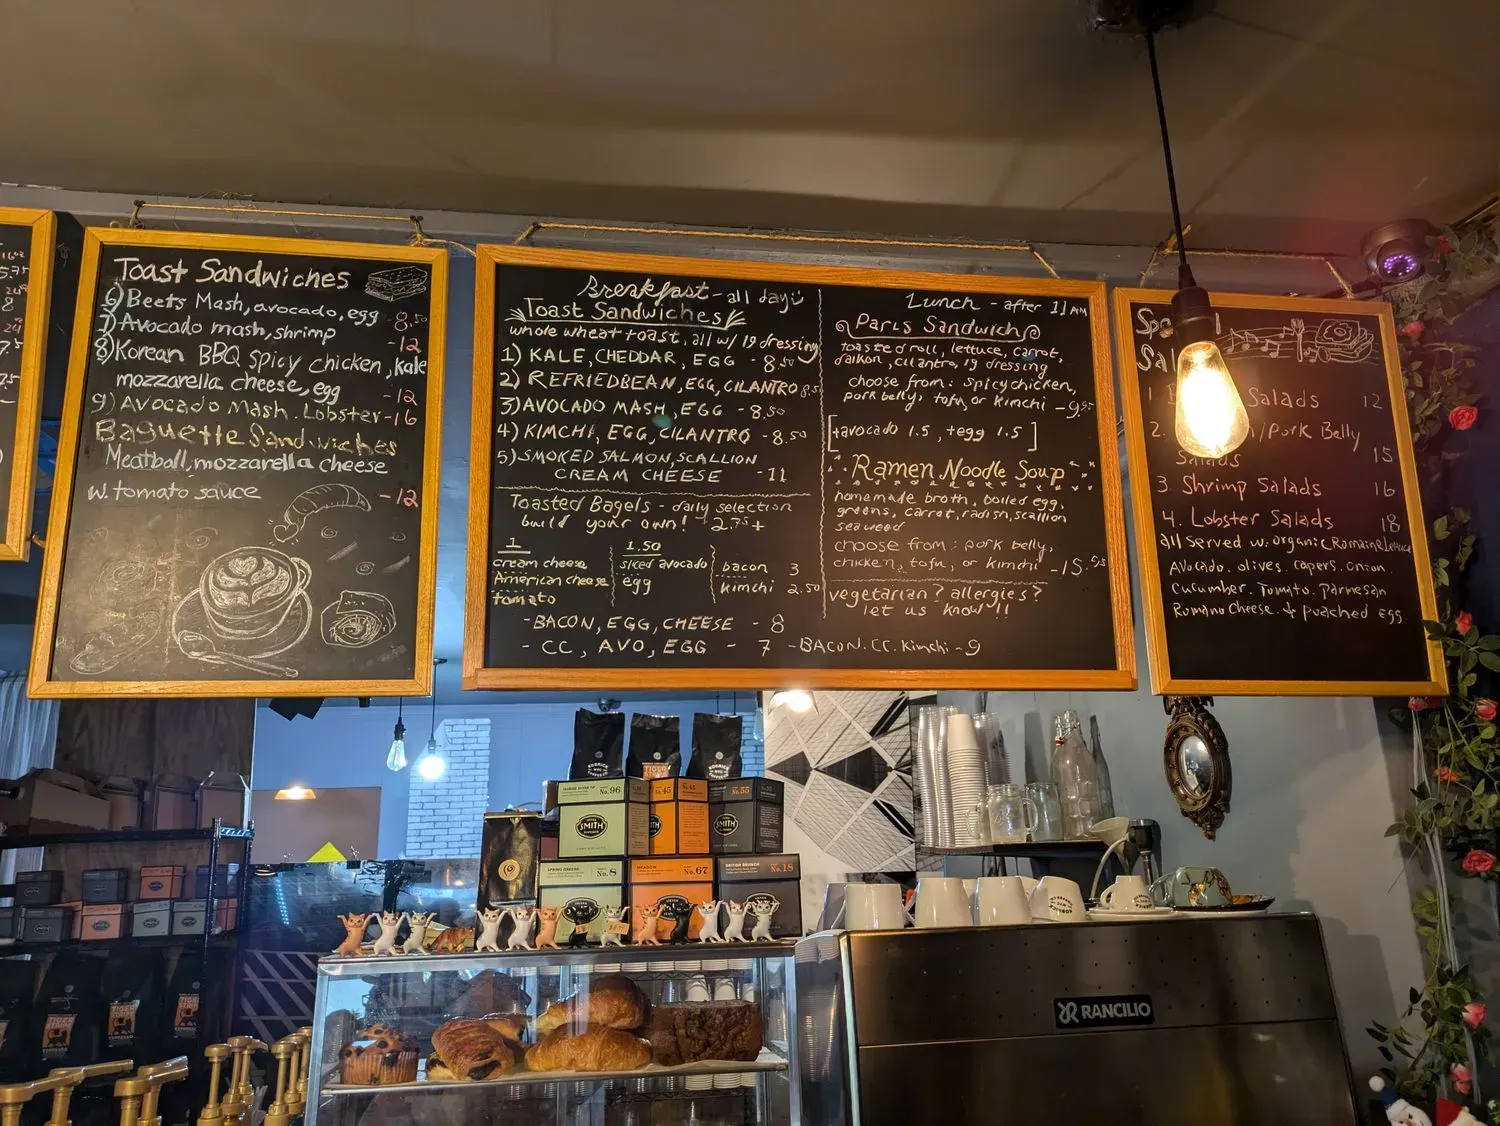 5.75
8
24
Toast Sandwiches
6) Beets Mash, avocado, egg - 8.50
7) Avocado mash, shrimp - 12
8) Korean BBQ spicy chicken, kale
mozzarella cheese, egg - 12
9) Avocado Mash. Lobster - 16
Baguette Sandwiches
Meatball, mozzarella cheese
w. tomato sauce - 12
Breakfast - all day
Toast Sandwiches
whole wheat toast, all w/ 19 dressing
1) KALE, CHEDDAR, EGG - 8.50
2) REFRIEDBEAN, EGG, CILANTRO 8.5
3) AVOCADO MASH, EGG - 8.50
4) KIMCHI, EGG, CILANTRO - 8.50
5) SMOKED SALMON, SCALLION
CREAM CHEESE - 11
Toasted Bagels - daily selection
build your own! 2.75+
1
cream cheese
American cheese
tomato
1.50
sliced avocado
egg
bacon 3
kimchi 2.50
- BACON, EGG, CHEESE - 8
- CC, AVO, EGG - 7
- BACON. CC. Kimchi - 9
Lunch - after 11 AM
Paris Sandwich
toasted roll, lettuce, carrot,
daikon, cilantro, 19 dressing
choose from: spicy chicken,
pork belly, tofu, or kimchi - 9.95
[+avocado 1.5, +egg 1.5]
Ramen Noodle Soup
homemade broth, boiled egg,
greens, carrot, radish, scallion
seaweed
choose from: pork belly,
chicken, tofu, or kimchi - 15.95
vegetarian? allergies?
let us know!!
1. Salads 12
2. /Pork Belly
Salads 15
3. Shrimp Salads 16
4. Lobster Salads 18
all served w. organic Romaine Lettuce
Avocado. olives. capers. onion.
cucumber. Tomato. parmesan
Romano cheese. & puached egg.
No. 96
SMITH
No. 45
No. 55
SPRING GREENS
No. 8
MEADOW
No. 67
BRITISH BRUNCH
No. 18
TIGER
STRIPE
ESPRESSO
RANCILIO